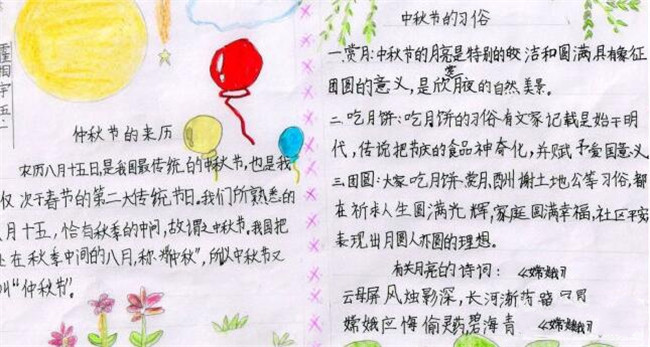 霍相宇 五.
仲秋节的来历
农历八月十五日,是我国最传统的中秋节,也是我
仅次于春节的第二大传统节日。我们所熟悉的
月十五,恰有秋季的中间,故谓之中秋节。我国把
在秋季中间的八月,称"仲秋",所以中秋节又
叫"仲秋节"。
中秋节的习俗
一.赏月:中秋节的月亮是特别的皎洁和圆满具有象征
团圆的意义,是欣赏月夜的自然美景。
二.吃月饼:吃月饼的习俗有文家记载是始于明
代,传说把节庆的食品神奇化,并赋予爱国意义
三.团圆:大家吃月饼、赏月,酬谢土地公等习俗,都
在祈求人生圆满光辉,家庭圆满幸福,社区平安
表现出月圆人亦圆的理想。
有关月亮的诗词:《嫦娥》
云母屏风烛影深,长河渐落
嫦娥应悔偷灵药,碧海青 《嫦娥》